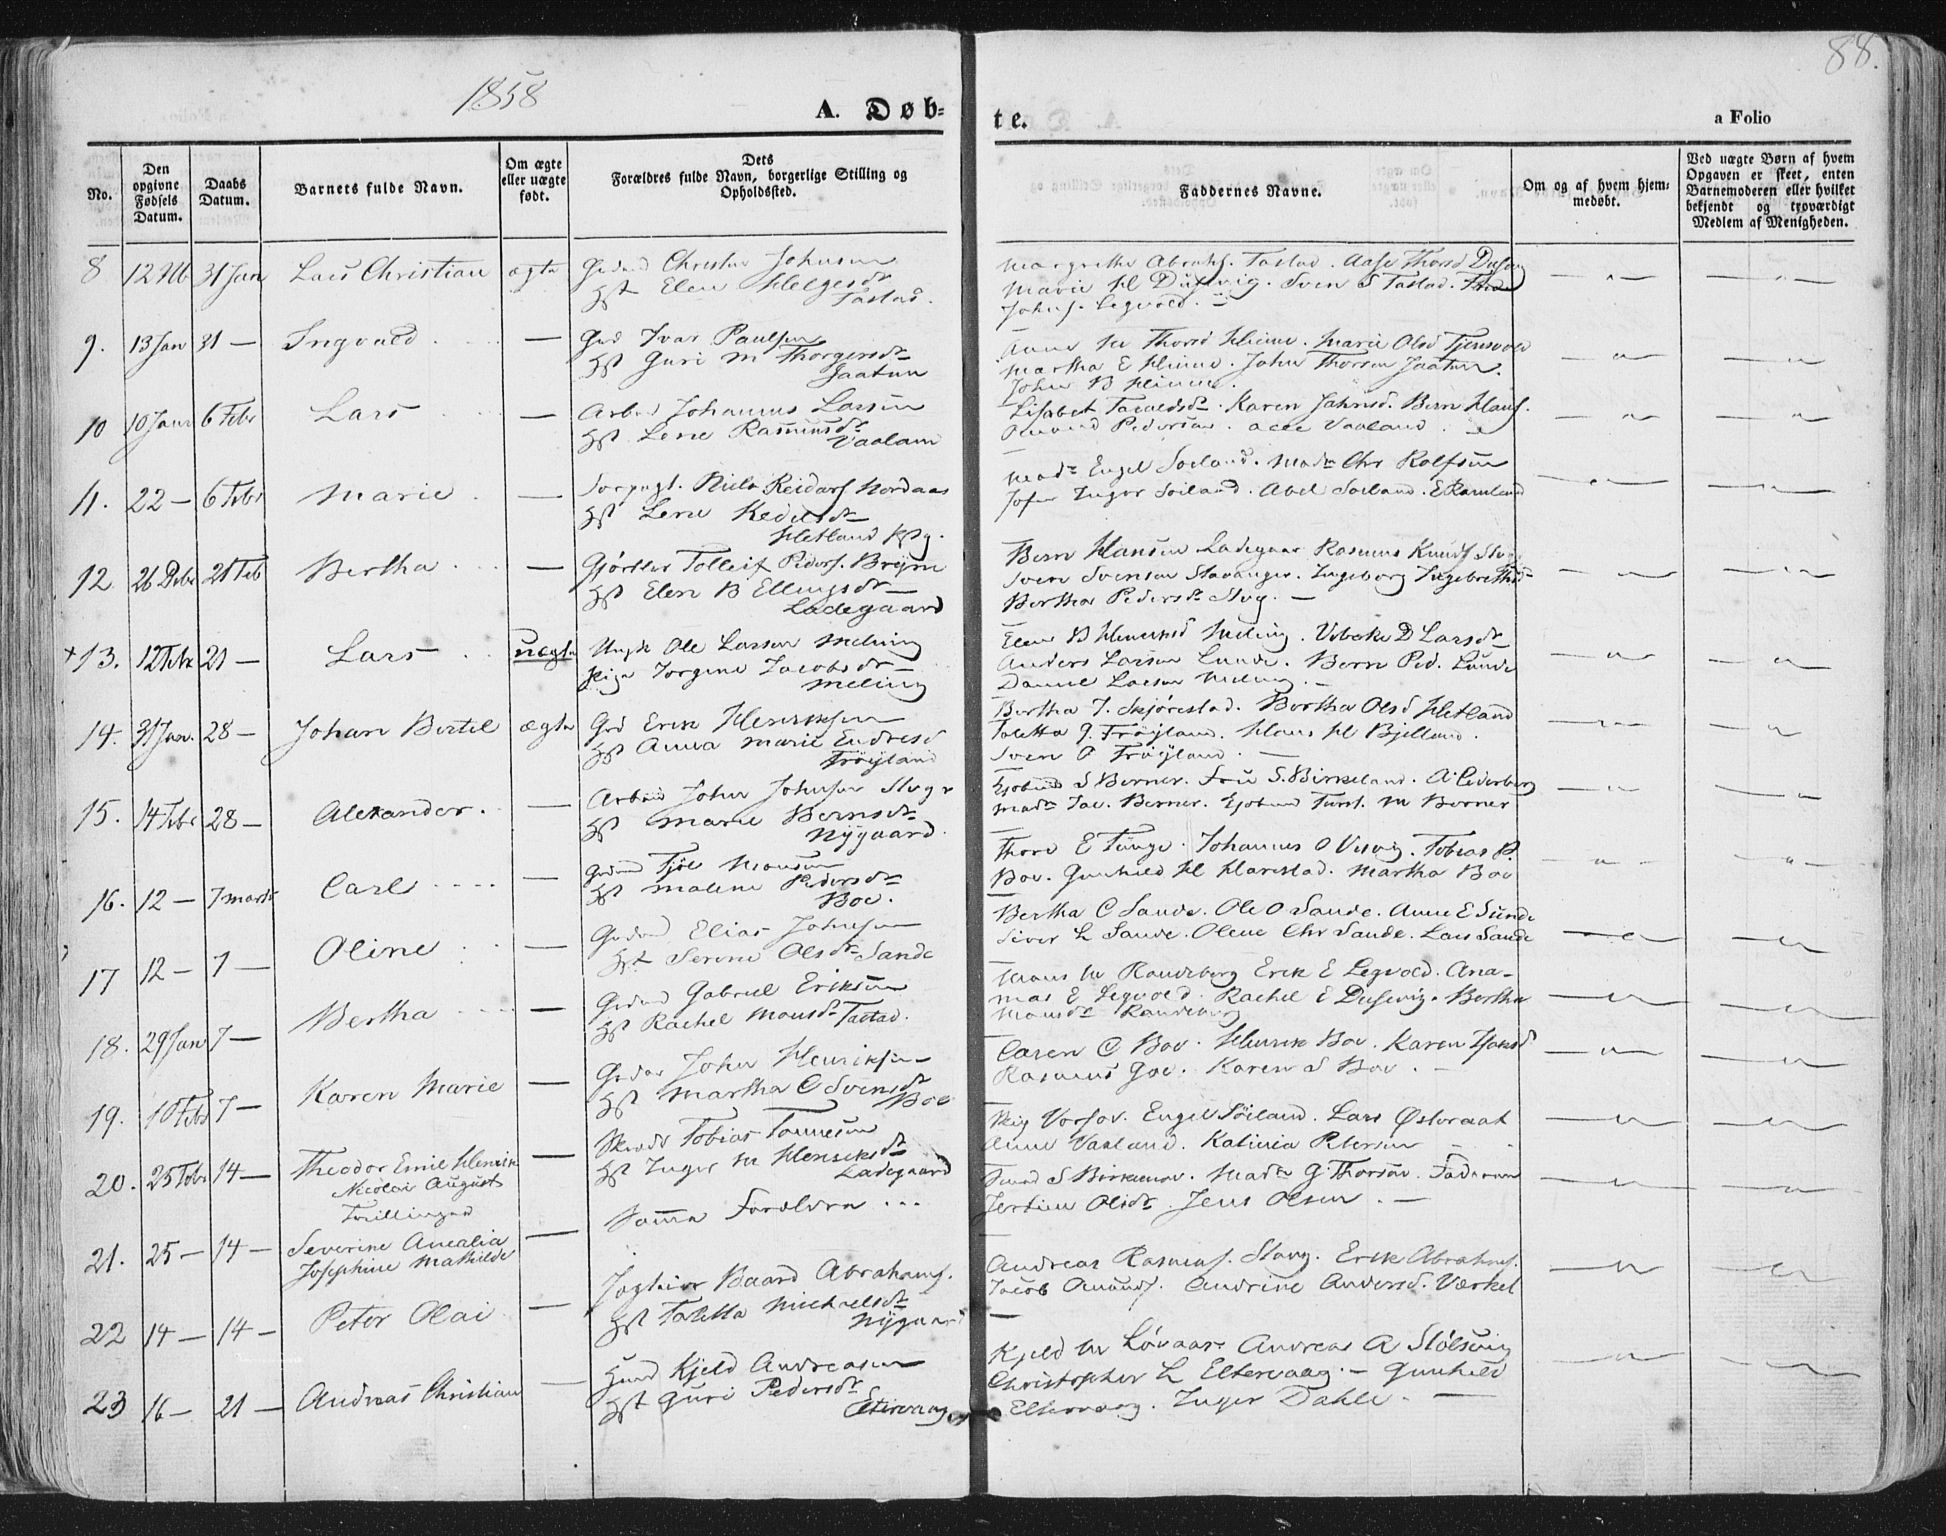 1858
88.
A. Døb-
te.
a Folio
No.
Den opgivne Fødsels Datum.
Daabs Datum.
Barnets fulde Navn.
Om ægte eller uægte født.
Dets Forældres fulde Navn, borgerlige Stilling og Opholdssted.
Faddernes Navne.
Om og af hvem hjem-medøbt.
Ved uægte Børn af hvem Opgaven er skeet, enten Barnemoderen eller hvilket bekjendt og troværdigt Medlem af Menigheden.
8 31 Jan Lars Christian ægte
Christen Johnsen
Hst Elen Helgesdr
Tastad.
Margrethe Abrahs. Tastad. Aase Thorsd Dusevig
Marie H Dusevig. Sven S Tastad.
Johns. Legvold.
9. 13 Jan 31 — Ingvald —
Ivar Paulsen
Hst Guri M Thorgersdr
Jaatun
Anne M Thorsd Hinne. Marie Olsd Tjensvold
Martha E Hinne. John Thorsen Jaatun.
John B Hinne.
10 10 Janr 6 Febr Lars —
Arbmd Johannes Larsen
Hst Lene Rasmusdr
Vaaland
Lisabet Tavaldsdr. Karen Jahnsd. Bern Hans.
Pedersen. alle Vaaland.
11. 22 — 6 Febr Marie —
Niels Reidars Nordaas
Hst Lene Kedelsdr
Hetland Psg.
Madm Engel Soeland. Madm Chr Rolfsen
Jofr Inger Soiland. Abel Soeland. E Ramland
12. 26 Debr 21 Feb Bertha —
Gjørtler Tolleif Peders. Bryne
Hst Elen B Ellingsdr
Ladegaard
Bern Hansen Ladegaar Rasmus Knuds
Sven Svensen Stavanger. Ingeborg Ingebrethsdr
Bertha Pedersdr Stvg. —
+13. 12 Febr 21 — Lars uægte
Ungk Ole Larsen Meling
Pige Jorgine Jacobsdr
Meling
Elen B Henriksd Meling. Vibeke D Larsdr
Anders Larsen Lunde. Bern Ped. Lunde
Daniel Larsen Meling. —
14. 31 Jan. 28 — Johan Bertil ægte
Grd Erik Henriksen
Hst Anna Marie Endresd
Frøyland
Bertha T. Skjørestad. Bertha Olsd Hetland
Taletta G. Frøyland. Hans H Bjelland.
Sven O Frøyland. —
15. 14 Febr 28 — Alexander. —
Arbmd John Johnsen Stvgr
Hst Marie Bernsdr
Nygaard.
S Berner. Fru S. Birkeland. A. Cederberg
Madm Jac. Berner. M Berner
16. 12 — 7 Marts Carl —
Tjøl Monsen
Hst Malene Pedersdr
Boe.
Thore E Tunge. Johannes O Visvig. Tobias P.
Boe. Gunhild H Harestad. Martha Boe
17 12 — 7 — Oline —
Elias Johnsen
Hst Serine Olsdr Sande
Bertha C Sande. Ole O Sande. Anne E Sunde
Siver L Sande. Olene Chr Sande. Lars Sande
18. 29 Jan 7 — Bertha —
Gabriel Eriksen
Hst Rachel Monsdr Tastad.
Mons M Randeberg Erik E Legvold. Ana-
nias E Legvold. Rachel E Dusevig. Bertha
Monsdr Randeberg
19. 10 Febr 7 — Karen Marie —
John Henriksen
Hst Martha C Svensdr
Boe
Caren C Boe. Henrik Boe. Karen
Rasmus Goe. Karen S Boe. —
20. 25 Febr 14 — Theodor Emil Henrik
Nicolai August
Tvillinger
Skrædr Tobias Tønnesen
Hst Inger M Henriksdr
Ladegaard
Engel Søiland. Lars Østeraat
Anne Vaaland. Katinia Petersen
21. 25 — 14 — Severine Amalia
Josephine Mathilde —
Samme Forældre ...
Madm G. Thorsøe. Faderen
Olsdr Jens Olsen. —
22 14 — 14 — Peter Olai —
Baard Abrahams.
Hst Taletta Michaelsdr
Nygaar
Andreas Rasmus. Stavg. Erik Abrahs.
Jacob Amunds. Andrine Andersd. Værket
23 16 — 21 — Andreas Christian —
Kjeld Andreasen
Hst Guri Pedersdr
Eltervaag
Kjeld M Løvaas. Andreas A Stølsvig
Christopher L Eltervaag. — Gunhild
Eltervaag. Inger Dahle. —